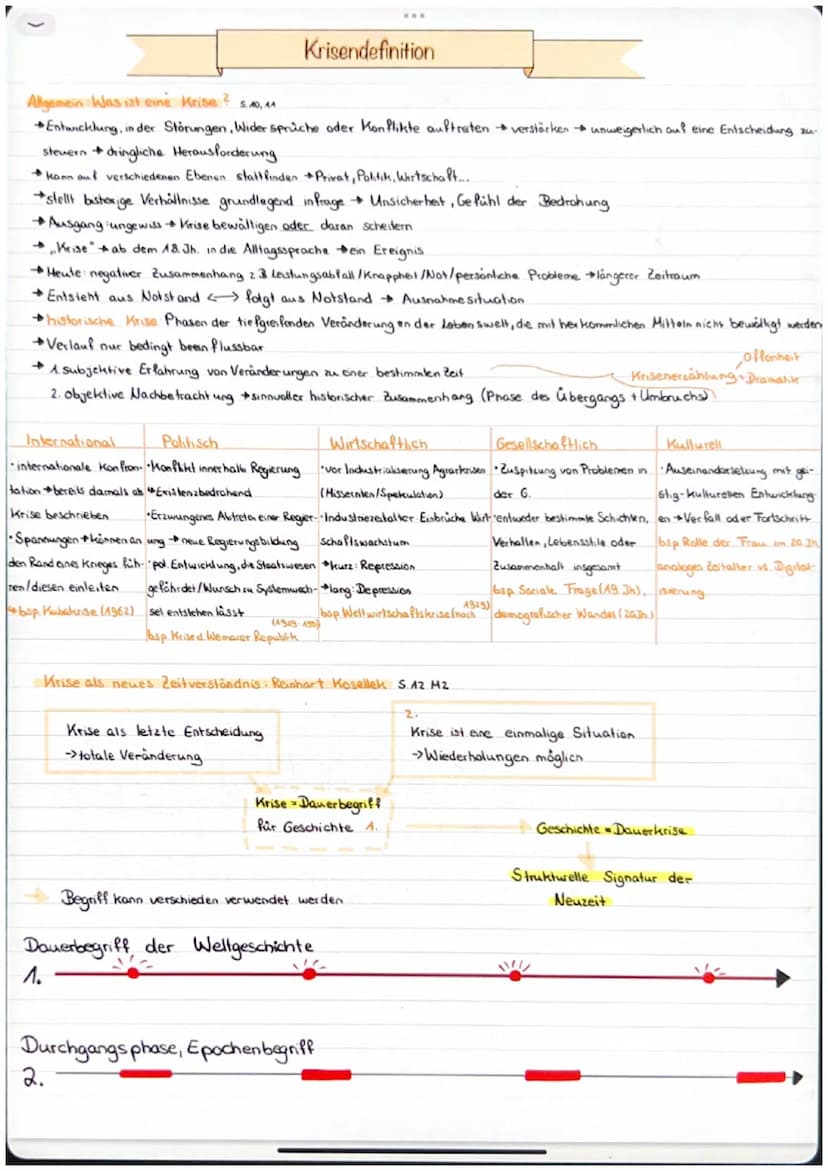 Krisendefinition
Allgemein: Was ist eine Krise? S. 10, 11
→ Entwicklung, in der Störungen, Widersprüche oder Konflikte auftreten → verstärken → unweigerlich auf eine Entscheidung zu-
steuern → dringliche Herausforderung
→ kann auf verschiedenen Ebenen stattfinden → Privat, Politik, Wirtschaft...
→ stellt bisherige Verhältnisse grundlegend infrage → Unsicherheit, Gefühl der Bedrohung
→ Ausgang: ungewiss → Krise bewältigen oder daran scheitern
→ „Krise" → ab dem 18. Jh. in die Alltagssprache → ein Ereignis
→ Heute: negativer Zusammenhang z.B Leistungsabfall/Knappheit/Not/persönliche Probleme → längerer Zeitraum
→ Entsteht aus Notstand ⟷ folgt aus Notstand → Ausnahmesituation
→ historische Krise Phasen der tiefgreifenden Veränderungen der Lebenswelt, die mit herkömmlichen Mitteln nicht bewältigt werden
→ Verlauf nur bedingt beeinflussbar
→ 1. subjektive Erfahrung von Veränderungen zu einer bestimmten Zeit
Offenheit
Krisenerzählung - Dramatik
2. objektive Nachbetrachtung → sinnvoller historischer Zusammenhang (Phase des Übergangs + Umbruchs)
International
· internationale Konfron-
tation → bereits damals als
Krise beschrieben
· Spannungen → können an
den Rand eines Krieges füh-
ren/diesen einleiten
↳ bsp. Kubakrise (1962)
Politisch
· Konflikt innerhalb Regierung
↳ Existenzbedrohend
· Erzwungenes Abtreten einer Regier-
ung → neue Regierungsbildung
· pol. Entwicklung, die Staatswesen
gefährdet/Wunsch zu Systemwech-
sel entstehen lässt
bsp Krise d. Weimarer Republik
Wirtschaftlich
· vor Industrialisierung Agrarkrisen
(Missernten/Spekulation)
· Industriezeitalter: Einbrüche Wirt-
schaftswachstum
→ kurz: Repression
→ lang: Depression
bsp Weltwirtschaftskrise (nach 1929)
Gesellschaftlich
· Zuspitzung von Problemen in
der G.
entweder bestimmte Schichten,
Verhalten, Lebensstile oder
Zusammenhalt insgesamt
bsp Soziale Frage (19. Jh),
demografischer Wandel (20Jh)
Kulturell
· Auseinandersetzung mit gei-
stig-kulturellen Entwicklung-
en → Verfall oder Fortschritt
bsp Rolle der Frau im 20. Jh
analoges Zeitalter vs Digital-
isierung
Krise als neues Zeitverständnis: Reinhart Kosellek S. 12 M2
Krise als letzte Entscheidung
-> totale Veränderung
2.
Krise ist eine einmalige Situation
-> Wiederholungen möglich
Krise = Dauerbegriff
für Geschichte 1.
Geschichte = Dauerkrise
Strukturelle Signatur der
Neuzeit
→ Begriff kann verschieden verwendet werden
Dauerbegriff der Weltgeschichte
1.
Durchgangsphase, Epochenbegriff
2.